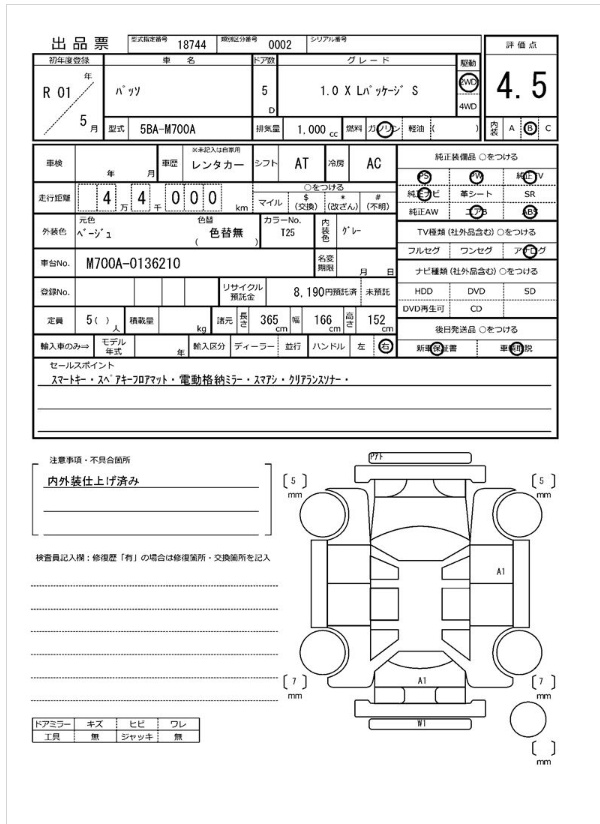 出品票 型式指定番号 18744 類別区分番号 0002 シリアル番号
評価点
4.5
内装 A B C
初年度登録 車名 ドア数 グレード 駆動
R 01 年 パッソ 5 D 1.0 X Lパッケージ S 2WD
4WD
5 月 型式 5BA-M700A 排気量 1,000 cc 燃料 ガソリン 軽油 ( )
車検 年 月 車歴 ※未記入は自家用 レンタカー シフト AT 冷房 AC
走行距離 4 4 万 千 0 0 0 km ○をつける
マイル $ (交換) * (改ざん) # (不明)
外装色 元色 ベージュ 色替 色替無 ( ) カラーNo. T25 内装色 グレー
車台No. M700A-0136210 名変期限 月 日
登録No. リサイクル預託金 8,190円預託済 未預託
定員 5 ( ) 人 積載量 kg 諸元 長さ 365 cm 幅 166 cm 高さ 152 cm
輸入車のみ⇒ モデル年式 年 輸入区分 ディーラー 並行 ハンドル 左 右
純正装備品 ○をつける
PS PW 純正TV
純正ナビ 革シート SR
純正AW エアB ABS
TV種類 (社外品含む) ○をつける
フルセグ ワンセグ アナログ
ナビ種類 (社外品含む) ○をつける
HDD DVD SD
DVD再生可 CD
後日発送品 ○をつける
新車保証書 車輌取説
セールスポイント
スマートキー・スペアキーフロアマット・電動格納ミラー・スマアシ・クリアランスソナー・
注意事項・不具合箇所
内外装仕上げ済み
検査員記入欄:修復歴「有」の場合は修復箇所・交換箇所を記入
[ 5 ] mm [ 5 ] mm
A1
[ 7 ] mm A1 [ 7 ] mm
W1
[ ] mm
ドアミラー キズ ヒビ ワレ
工具 無 ジャッキ 無